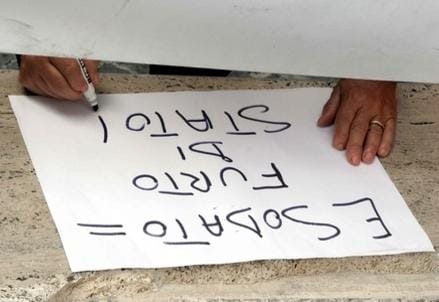 ESODATO =
FURTO
DI
STATO!